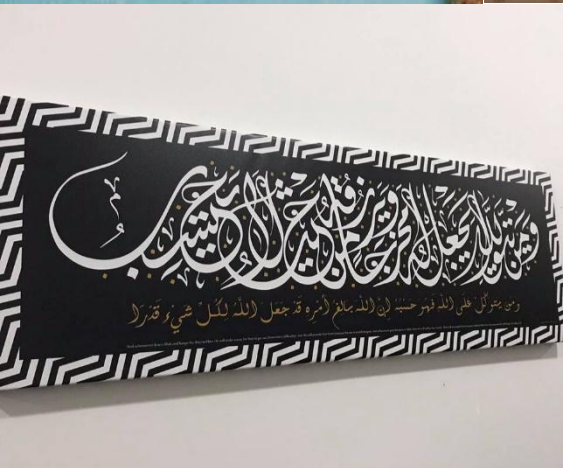 ومن يتق الله يجعل له مخرجا ويرزقه من حيث لا يحتسب
ومن يتوكل على الله فهو حسبه إن الله بالغ أمره قد جعل الله لكل شيء قدرا